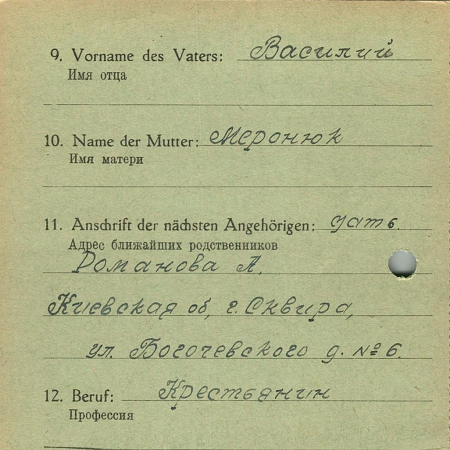 9. Vorname des Vaters: Василий
Имя отца
10. Name der Mutter: Меронюк
Имя матери
11. Anschrift der nächsten Angehörigen:
Адрес ближайших родственников
Романова А.
Киевская об, г. Сквира,
ул. Богочевского д. № 6.
12. Beruf: Крестьянин
Профессия